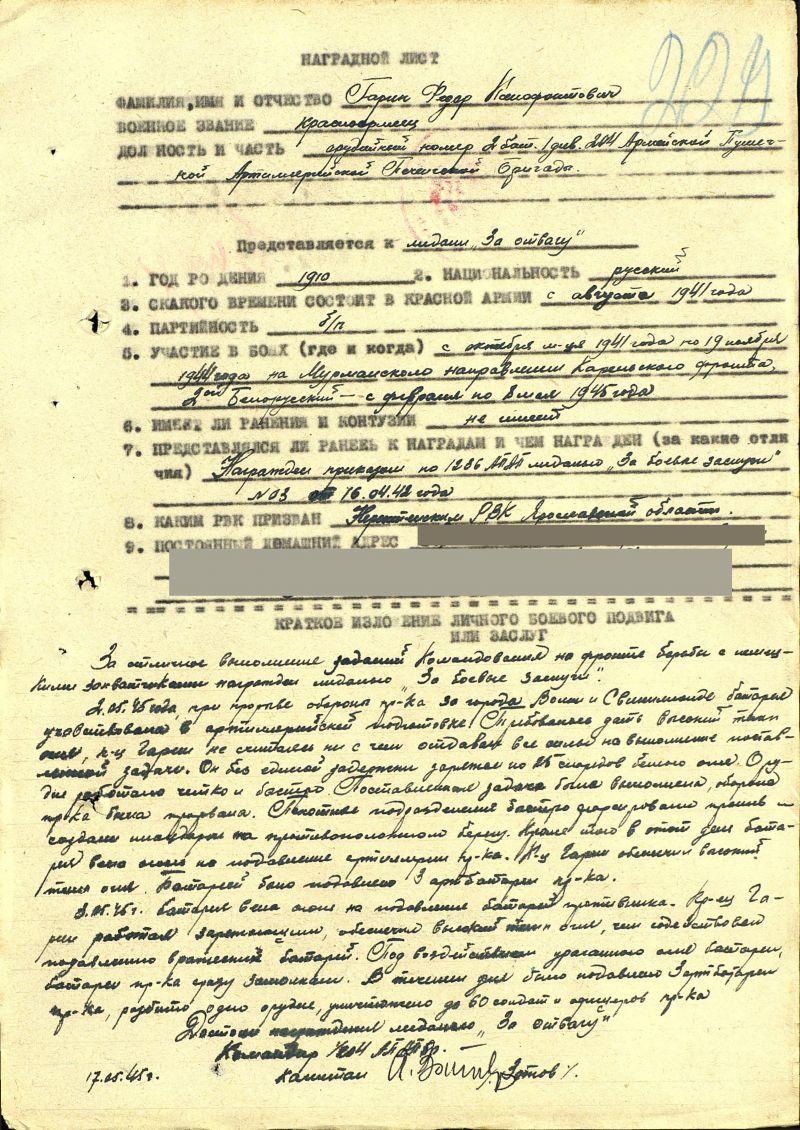 229
НАГРАДНОЙ ЛИСТ
ФАМИЛИЯ, ИМЯ И ОТЧЕСТВО Гарин Федор Ксенофонтович
ВОЕННОЕ ЗВАНИЕ красноармеец
ДОЛ НОСТЬ И ЧАСТЬ орудийный номер 2 бат. 1 див. 204 Армейской Пушеч-
ной Артиллерийской Печенгской бригады.
Представляется к медали „За отвагу"
1. ГОД РО ДЕНИЯ 1910 2. НАЦИОНАЛЬНОСТЬ русский
3. СКАКОГО ВРЕМЕНИ СОСТОИТ В КРАСНОЙ АРМИИ с августа 1941 года
4. ПАРТИЙНОСТЬ б/п
5. УЧАСТИЕ В БОЯХ (где и когда) с октября м-ца 1941 года по 19 ноября
1944 года на Мурманском направлении Карельского фронта,
2ой Белорусский – с февраля по 8 мая 1945 года
6. ИМЕЕТ ЛИ РАНЕНИЯ И КОНТУЗИИ не имеет
7. ПРЕДСТАВЛЯЛСЯ ЛИ РАНЕЕЬ К НАГРАДАМ И ЧЕМ НАГРА ДЕН (за какие отли
чия) Награжден приказом по 1236 АПАП медалью „За боевые заслуги"
№ 03 от 16.04.42 года
8. КАКИМ РВК ПРИЗВАН РВК Ярославской области.
9. ПОСТОЯННЫЙ ДОМАШНИЙ АДРЕС
КРАТКОЕ ИЗЛО ЕНИЕ ЛИЧНОГО БОЕВОГО ПОДВИГА
ИЛИ ЗАСЛУГ
За отличное выполнение заданий Командования на фронте борьбы с немец-
кими захватчиками награжден медалью „За боевые заслуги".
2.05.45 года, при прорыве обороны пр-ка за города Волин и Свинемюнде батарея
участвовала в артиллерийской подготовке. Требовалось дать высокий темп
огня, к-ц Гарин не считаясь ни с чем отдавал все силы на выполнение постав-
ленной задачи. Он без единой задержки заряжал по 25 снарядов беглого огня. Ору-
дие работало четко и быстро. Поставленная задача была выполнена, оборона
пр-ка была прорвана. Пехотные подразделения быстро форсировали пролив и
создали плацдарм на противоположном берегу. Кроме того в этот день бата-
рея вела огонь на подавление артиллерии пр-ка. К-ц Гарин обеспечил высокий
темп огня. Батареей было подавлено 3 артбатареи пр-ка.
3.05.45 г. батарея вела огонь на подавление батарей противника. Кр-ец Га-
рин работал заряжающим, обеспечил высокий темп огня, чем содействовал
подавлению вражеских батарей. Под воздействием ураганного огня батареи,
батареи пр-ка сразу замолкали. В течении дня было подавлено 3 артбатареи
пр-ка, разбито одно орудие, уничтожено до 60 солдат и офицеров пр-ка
Достоин награждения медалью „За отвагу"
Командир 1/204 АПАБр.
капитан Зотов
17.05.45 г.